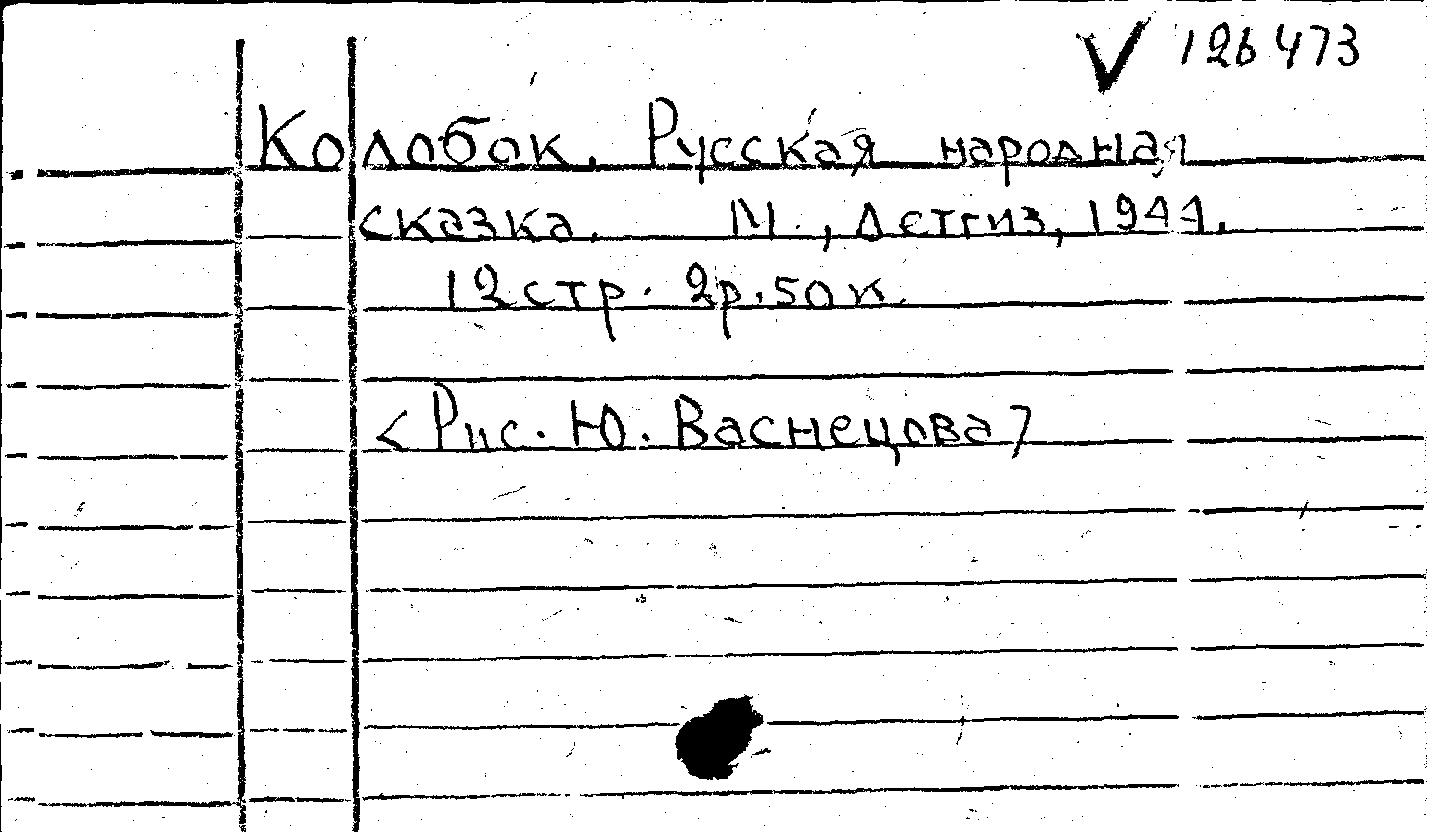 V 126473
Колобок. Русская народная
сказка. М., Детгиз, 1944.
12 стр. 2р. 50к.
<Рис. Ю. Васнецова>